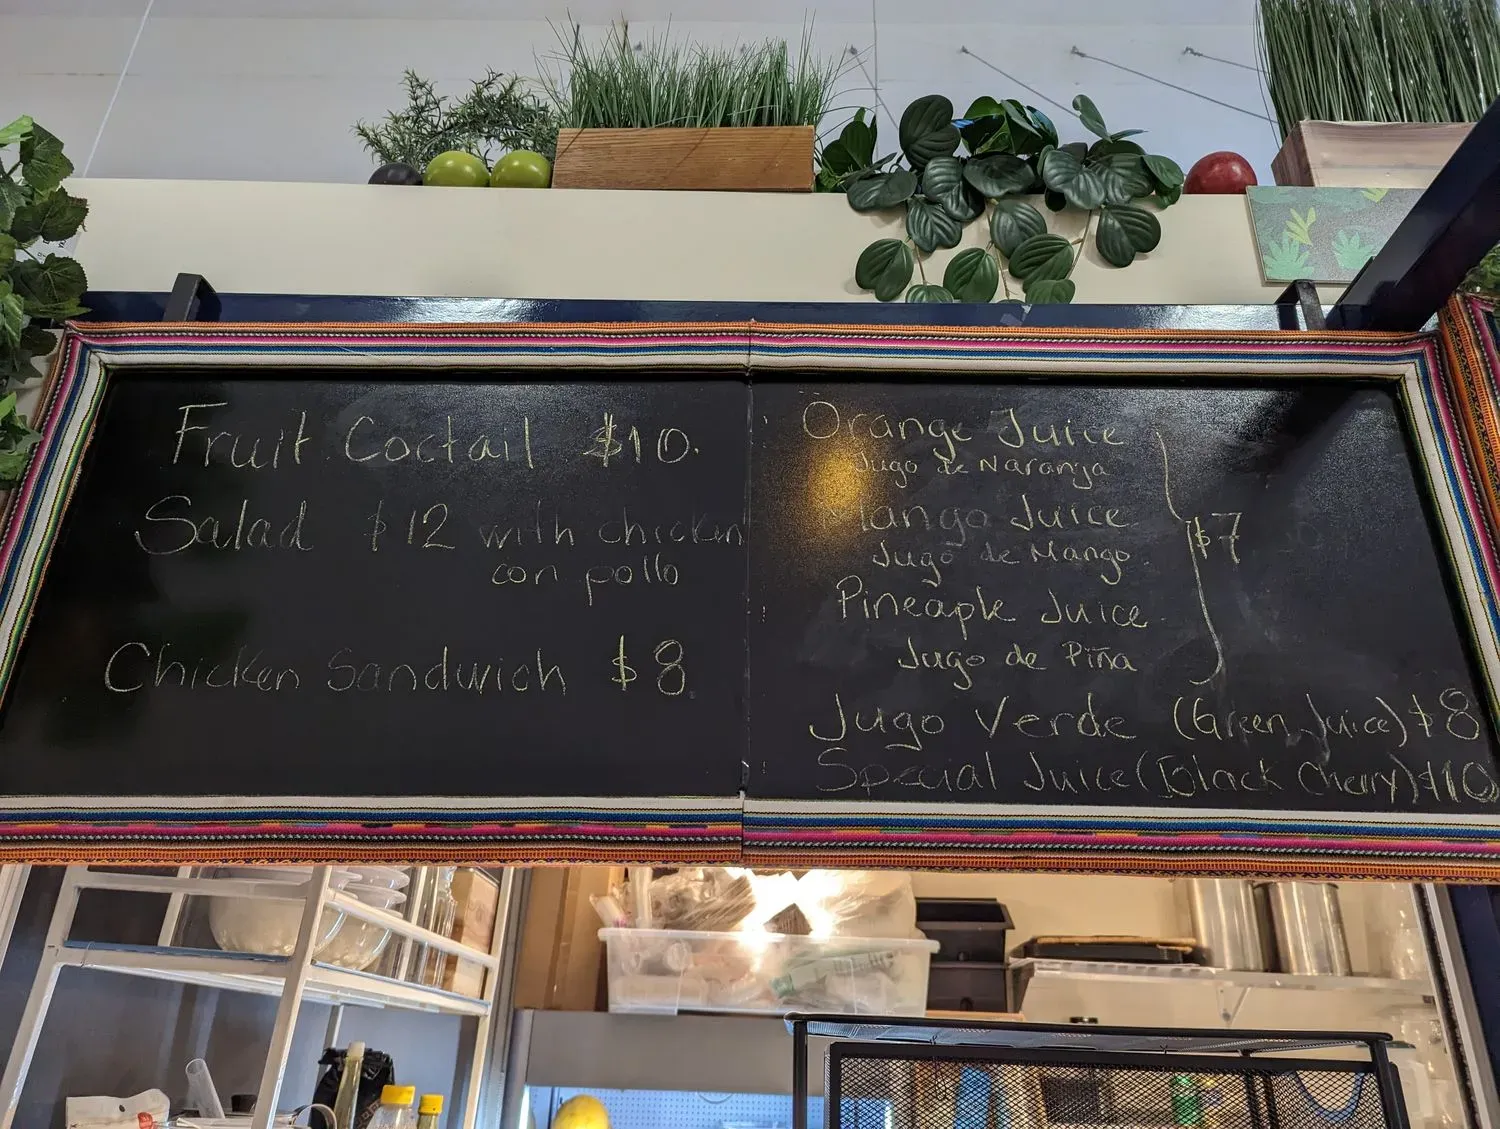 Fruit Coctail $10.
Salad $12 with chicken
con pollo
Chicken Sandwich $8
Orange Juice
Jugo de Naranja
Mango Juice
Jugo de Mango
$7
Pineaple Juice
Jugo de Piña
Jugo Verde (Green Juice) $8
Special Juice (Black Cherry) $10